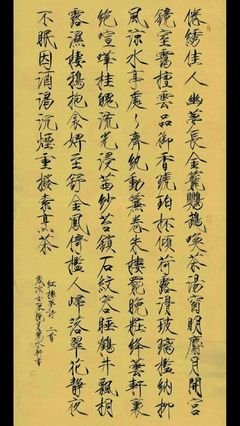 倦繡佳人幽夢長金籠鸚鵡喚茶湯窗明麝月開宮
鏡室靄檀雲品御香琥珀杯傾荷露滑玻璃檻納柳
風涼水亭處々齊紈動簾卷朱樓罷晚粧絳芸軒裏
絕喧嘩桂魄流光浸茜紗苔鎖石紋容睡鶴井飄桐
露濕棲鴉抱衾婢至舒金鳳倚檻人歸落翠花靜夜
不眠因酒渴沉煙重撥索烹茶
紅樓夢詩二首
歲次